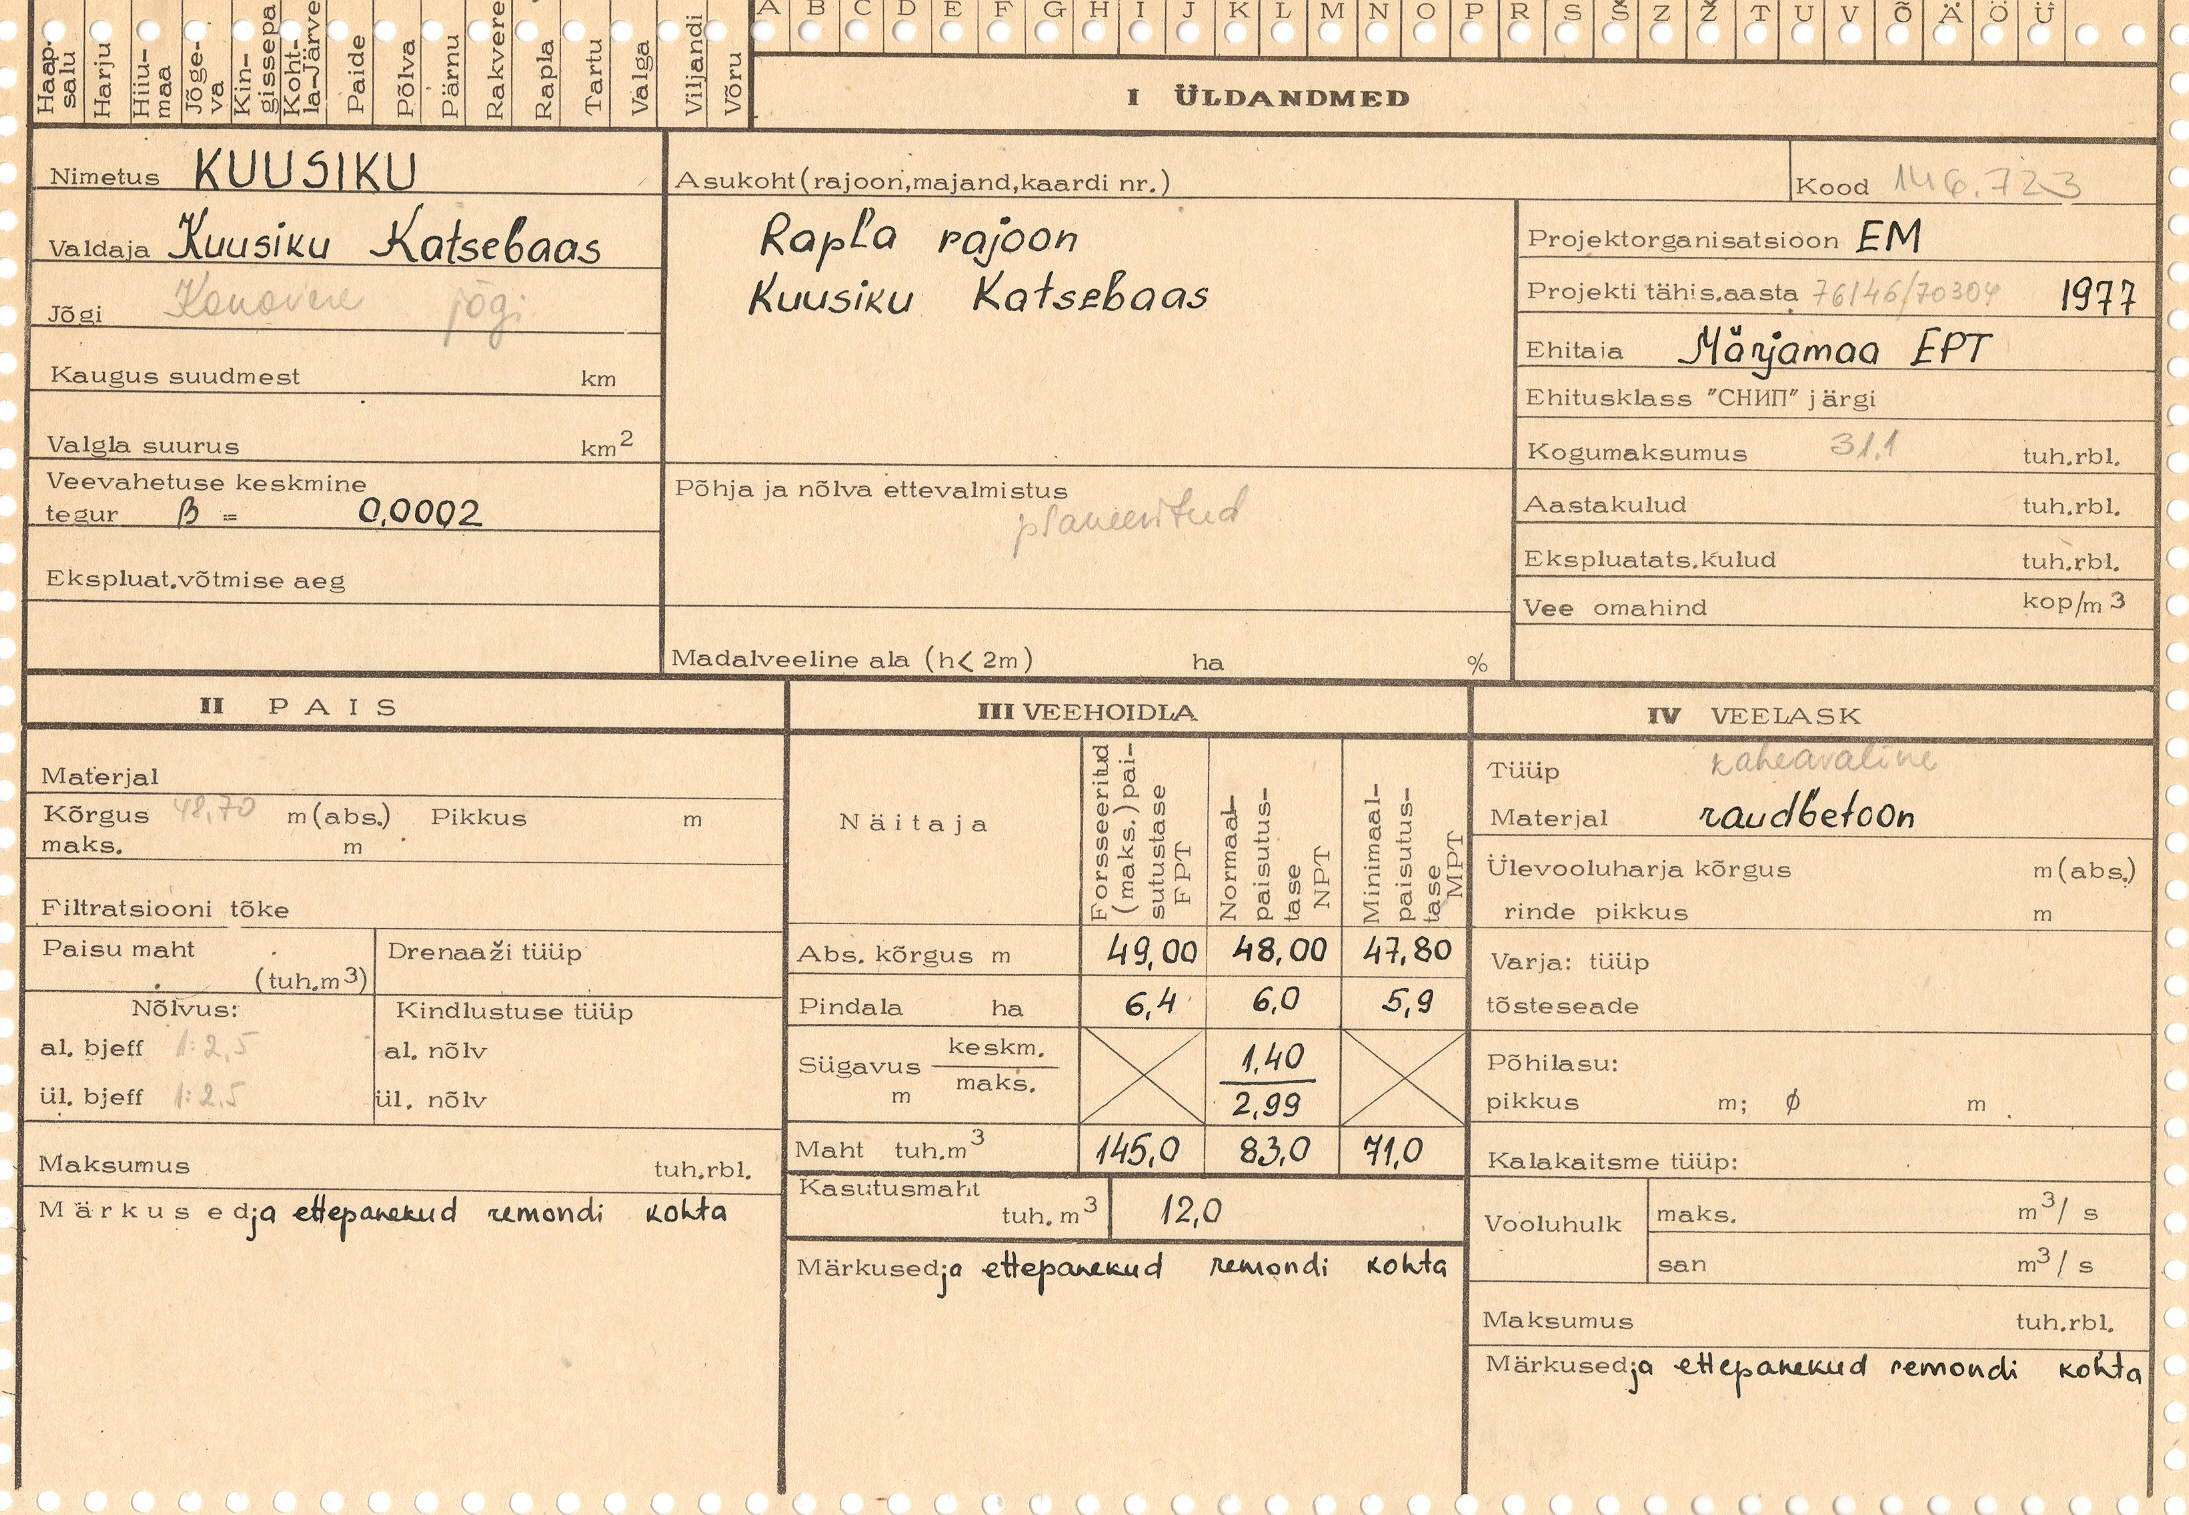 Haap-
salu
Harju
Hiiu-
maa
Jõge-
va
Kin-
gissepa
Koht-
la-Järve
Paide
Põlva
Pärnu
Rakvere
Rapla
Tartu
Valga
Viljandi
Võru
A B C D E F G H I J K L M N O P R S Š Z Ž T U V Õ Ä Ö Ü
I ÜLDANDMED
Nimetus KUUSIKU
Asukoht (rajoon,majand,kaardi nr.)
Kood 146.723
Valdaja Kuusiku Katsebaas
Rapla rajoon
Kuusiku Katsebaas
Projektorganisatsioon EM
Jõgi Konovere jõgi
Projekti tähis.aasta 76146/70304 1977
Ehitaja Märjamaa EPT
Kaugus suudmest km
Ehitusklass "СНИП" järgi
Valgla suurus km2
Kogumaksumus 31.1 tuh.rbl.
Veevahetuse keskmine
tegur β = 0,0002
Põhja ja nõlva ettevalmistus
planeeritud
Aastakulud tuh.rbl.
Ekspluat.võtmise aeg
Ekspluatats.kulud tuh.rbl.
Vee omahind kop/m3
Madalveeline ala (h< 2m) ha %
II PAIS
Materjal
Kõrgus 48,70 m(abs.) Pikkus m
maks. m
Filtratsiooni tõke
Paisu maht
(tuh.m3)
Drenaaži tüüp
Nõlvus:
Kindlustuse tüüp
al. bjeff 1:2,5
al. nõlv
ül. bjeff 1:2,5
ül. nõlv
Maksumus tuh.rbl.
Märkused ja ettepanekud remondi kohta
III VEEHOIDLA
Näitaja
Forsseeritud
(maks.)pai-
sutustase
FPT
Normaal-
paisutus-
tase
NPT
Minimaal-
paisutus-
tase
MPT
Abs. kõrgus m 49,00 48,00 47,80
Pindala ha 6,4 6,0 5,9
Sügavus keskm. 1,40
m maks. 2,99
Maht tuh.m3 145,0 83,0 71,0
Kasutusmaht
tuh.m3 12,0
Märkused ja ettepanekud remondi kohta
IV VEELASK
Tüüp kaheavaline
Materjal raudbetoon
Ülevooluharja kõrgus m(abs.)
rinde pikkus m
Varja: tüüp
tõsteseade
Põhilasu:
pikkus m; ϕ m
Kalakaitsme tüüp:
Vooluhulk
maks. m3/s
san m3/s
Maksumus tuh.rbl.
Märkused ja ettepanekud remondi kohta